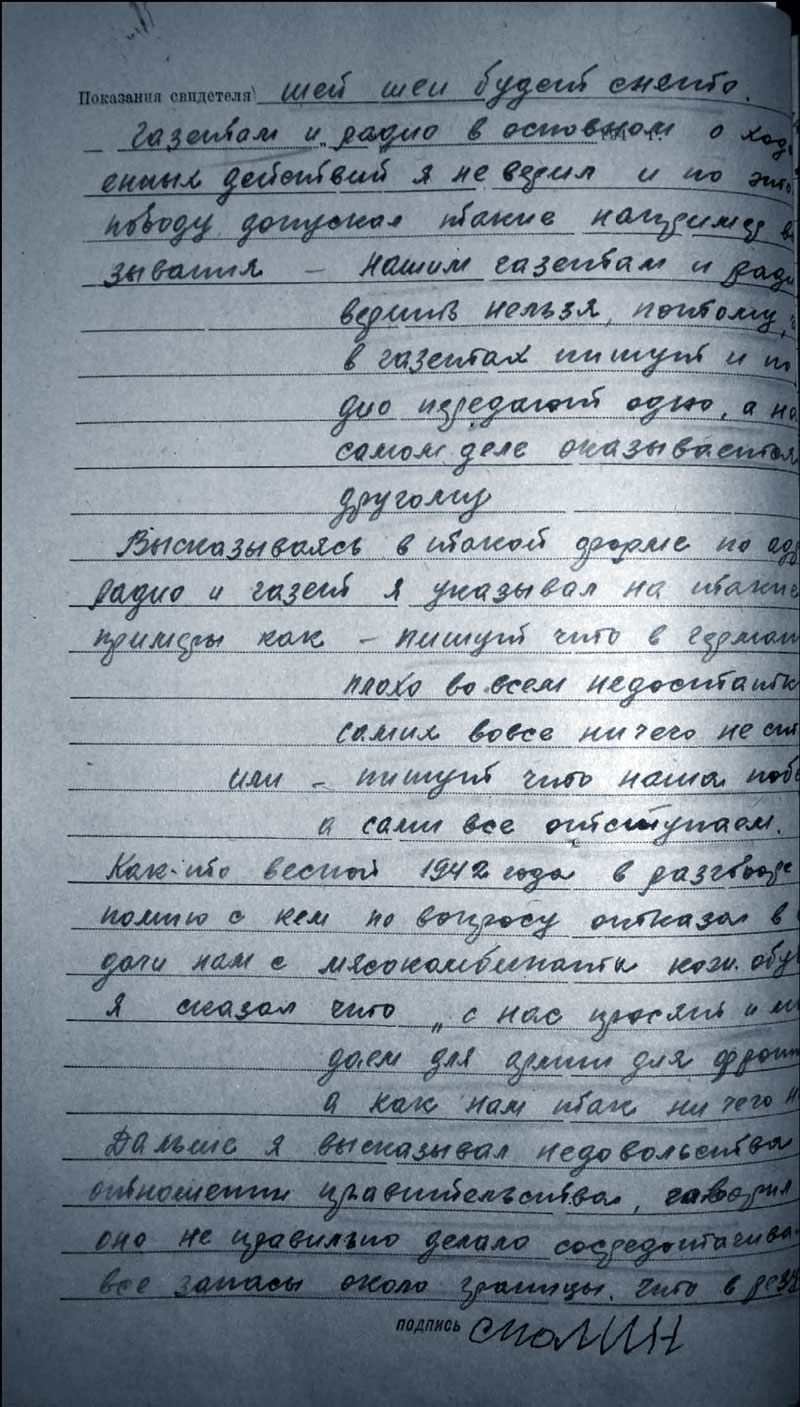 Показания свидетеля) шей шеи будет снято.
Газетам и радио в основном о ход
енных действий я не верил и по это
поводу допускал такие например в
зывания – нашим газетам и ради
верить нельзя, потому,
в газетах пишут и по
дио передают одно, а на
самом деле оказывается
другому
Высказываясь в такой форме по адр
радио и газет я указывал на такие
примеры как – пишут что в герман
плохо во всем недостатк
самих вовсе ничего не ст
или – пишут что наша побе
а сами все отступаем.
Как-то весной 1942 года в разговоре
помню с кем по вопросу отказа в в
дачи нам с мясокомбината кож. обу
Я сказал что „с нас просят и м
даем для армии для фронт
а как нам так ни чего н
Дальше я высказывал недовольства
отношении правительства, говорил
оно не правильно делало сосредотачива
все запасы около границы, что в рез
подпись Смолин